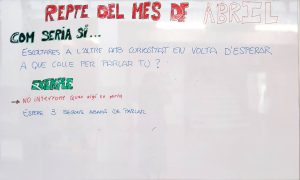 REPTE DEL MES DE ABRIL
COM SERIA SÍ...
ESCOLTARES A L'ALTRE AMB CURIOSITAT EN VOLTA D'ESPERAR
A QUE CALLE PER PARLAR TU?
EXEMPLE
→ NO INTERROMPE QUAN ALGÚ PARLA
ESPERE 3 SEGONS ABANS DE PARLAR